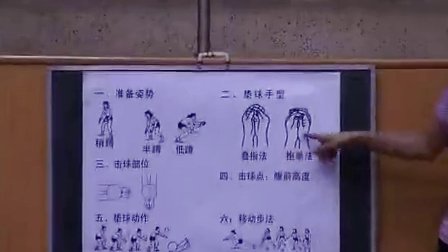 一、准备姿势
稍蹲
半蹲
低蹲
二、垫球手型
叠指法
抱拳法
三、击球部位
四、击球点:腹前高度
五、垫球动作
六:移动步法